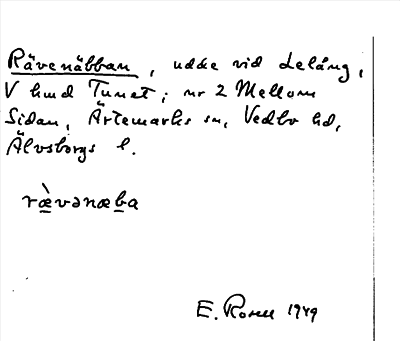 Rävenäbban, udde vid Lelång,
V hmd Tunet; nr 2 Mellom
Sidan, Ärtemarks sn, Vedbo hd,
Älvsborgs l.
rævənæba
E. Rosell 1949